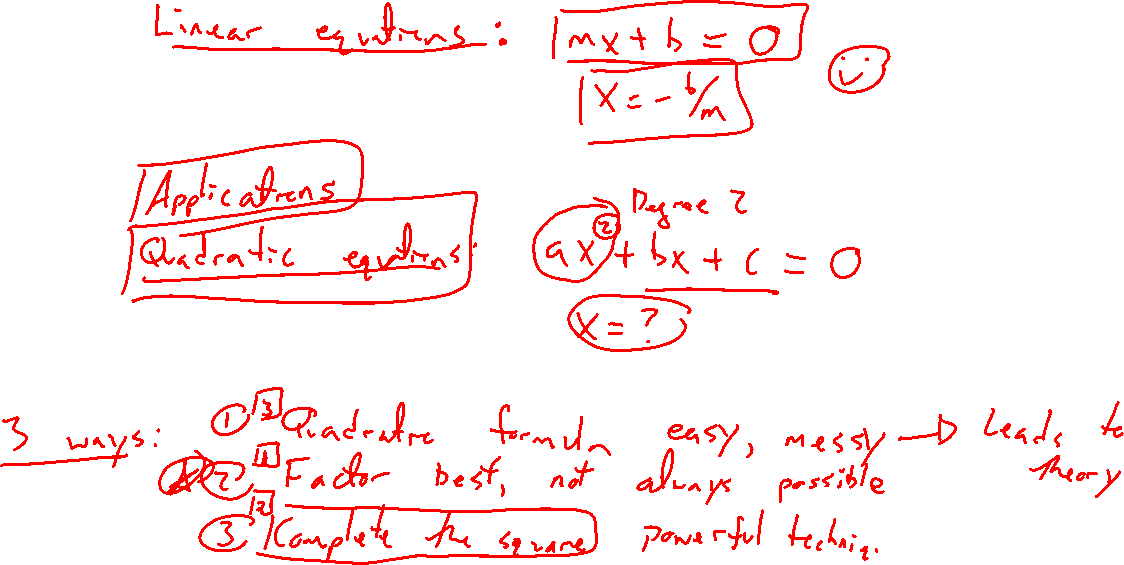 Linear equations: mx + b = 0
x = - b/m
Applications
Degree 2
Quadratic equations: ax² + bx + c = 0
x = ?
3 ways: ① 3 Quadratic formula easy, messy → Leads to theory
② 1 Factor best, not always possible
③ 2 Complete the square powerful techniq.